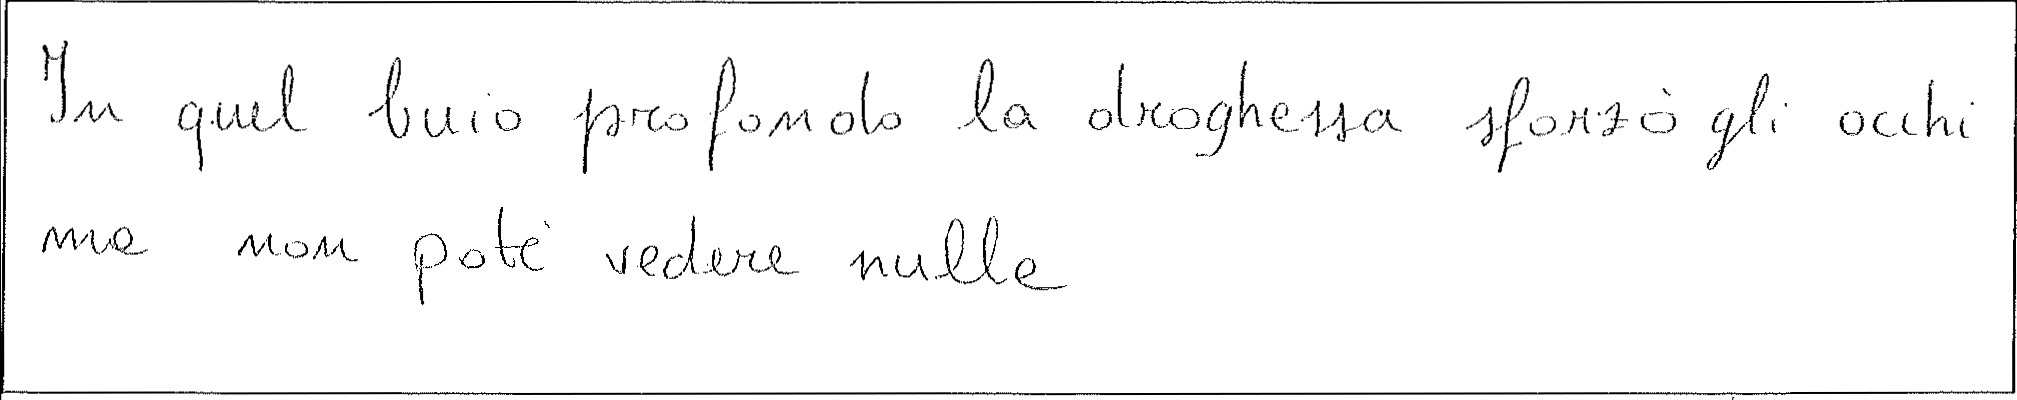 In quel buio profondo la droghessa sforzò gli occhi
ma non poté vedere nulla